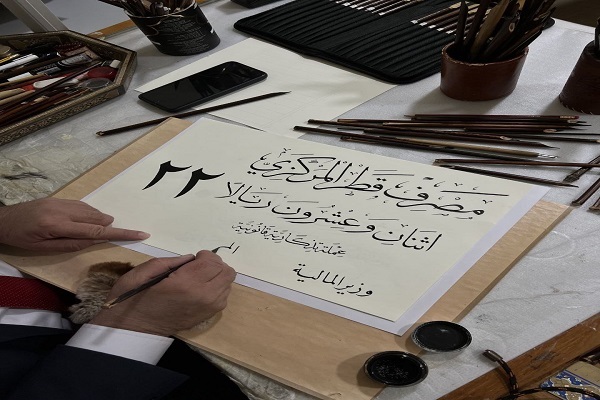 مصرف قطر المركزي
اثنان وعشرون ريالا ٢٢
عملة تذكارية قانونية
وزير المالية